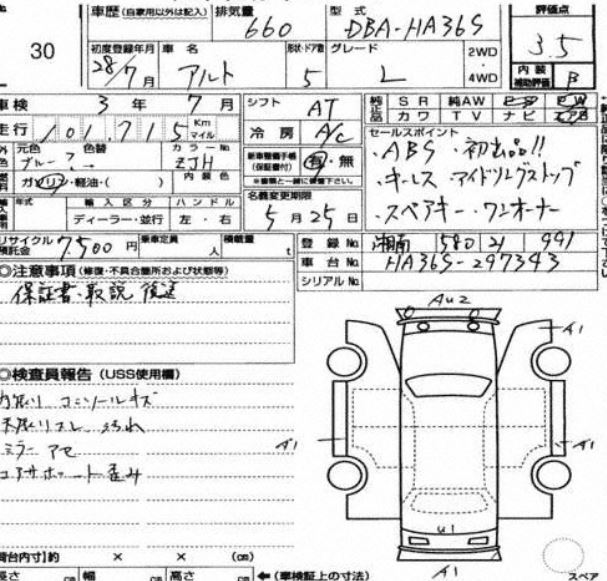 30
車歴 (自家用以外は記入) 排気量 660 型式 DBA-HA36S 評価点 3.5
初度登録年月 28/7月 車名 アルト 形状・ドア数 5 グレード L 2WD・4WD 内装補助評価 B
車検 3年7月 シフト AT 純正品 SR 純AW PS PW
走行 101,715 Km マイル 冷房 A/C カワ TV ナビ エアB
外色 元色 ブルー ? 色替 → カラーNo ZJH 新車整備手帳 (保証書付) 有・無 セールスポイント
燃料 ガソリン・軽油・( ) 内装色 ※書類と一緒に保管下さい。
・ABS ・初出品!!
・キーレス アイドリングストップ
・スペアキー・ワンオーナー
年式 輸入区分 ハンドル 名義変更期限
ディーラー・並行 左・右 5月25日
リサイクル預託金 7,500円 乗車定員 人 積載量 t 登録No. 湘南 580 21 991
車台No. HA36S-297343
シリアルNo.
◎注意事項 (修復・不具合箇所および状態等)
保証書・取説 後送
◎検査員報告 (USS使用欄)
内張り コンソールキズ
天張りスレ 汚れ
ミラー アセ
コアサポート歪み
AU2
A1
A1
A1
U1
A1
荷台内寸)約 × × (cm)
長さ cm 幅 cm 高さ cm ←(車検証上の寸法)
スペア